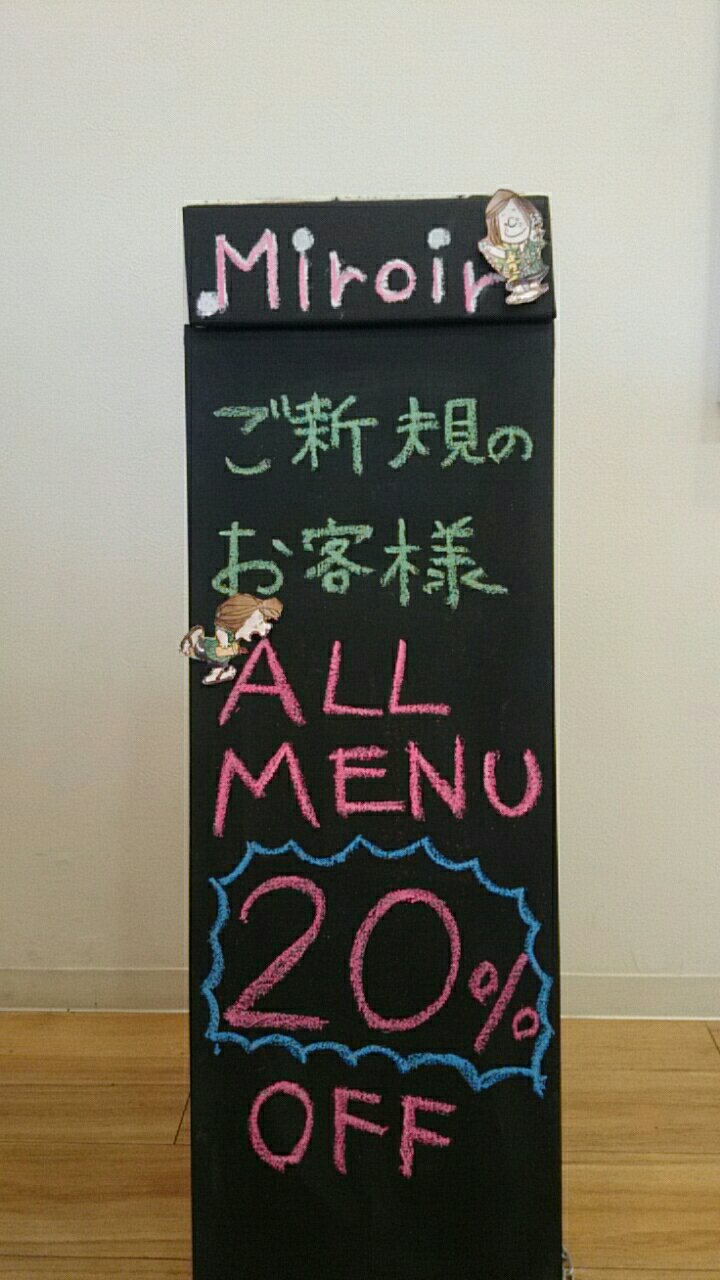 Miroir
ご新規の
お客様
ALL
MENU
20%
OFF